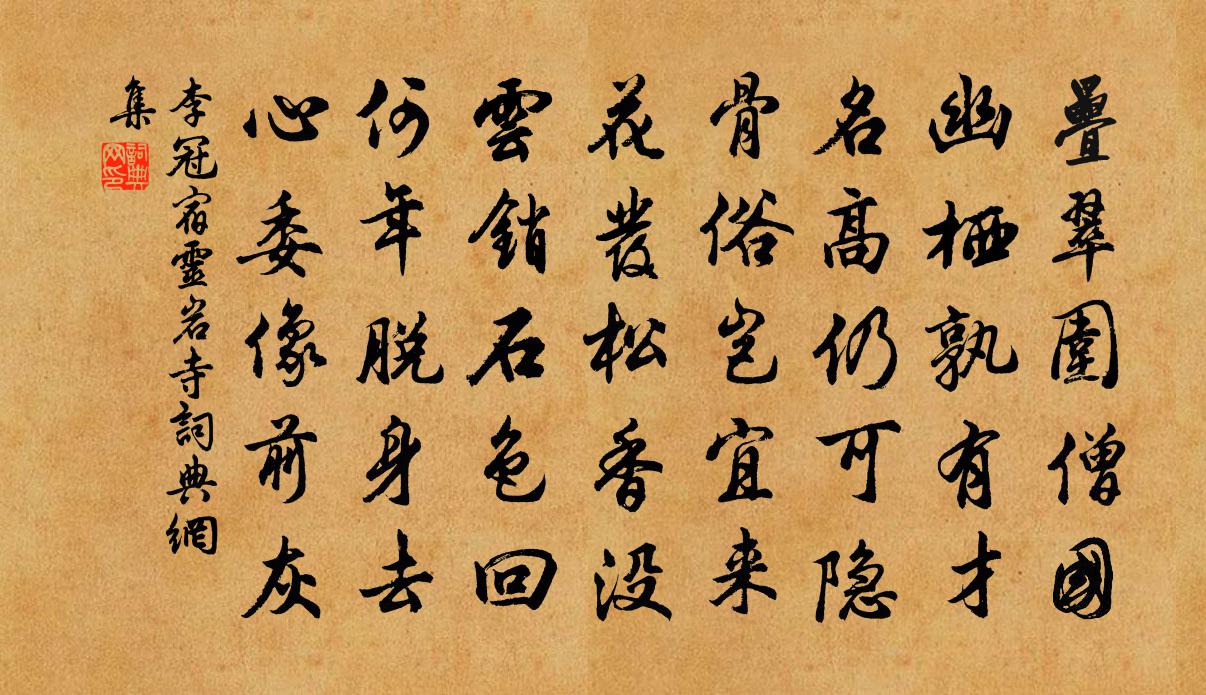 疊翠圍僧國
幽栖孰有才
名高仍可隐
骨俗岂宜来
花發松香没
雲銷石色回
何年脱身去
心委像前灰
李冠宿靈岩寺詞典網
集
詞典
网印